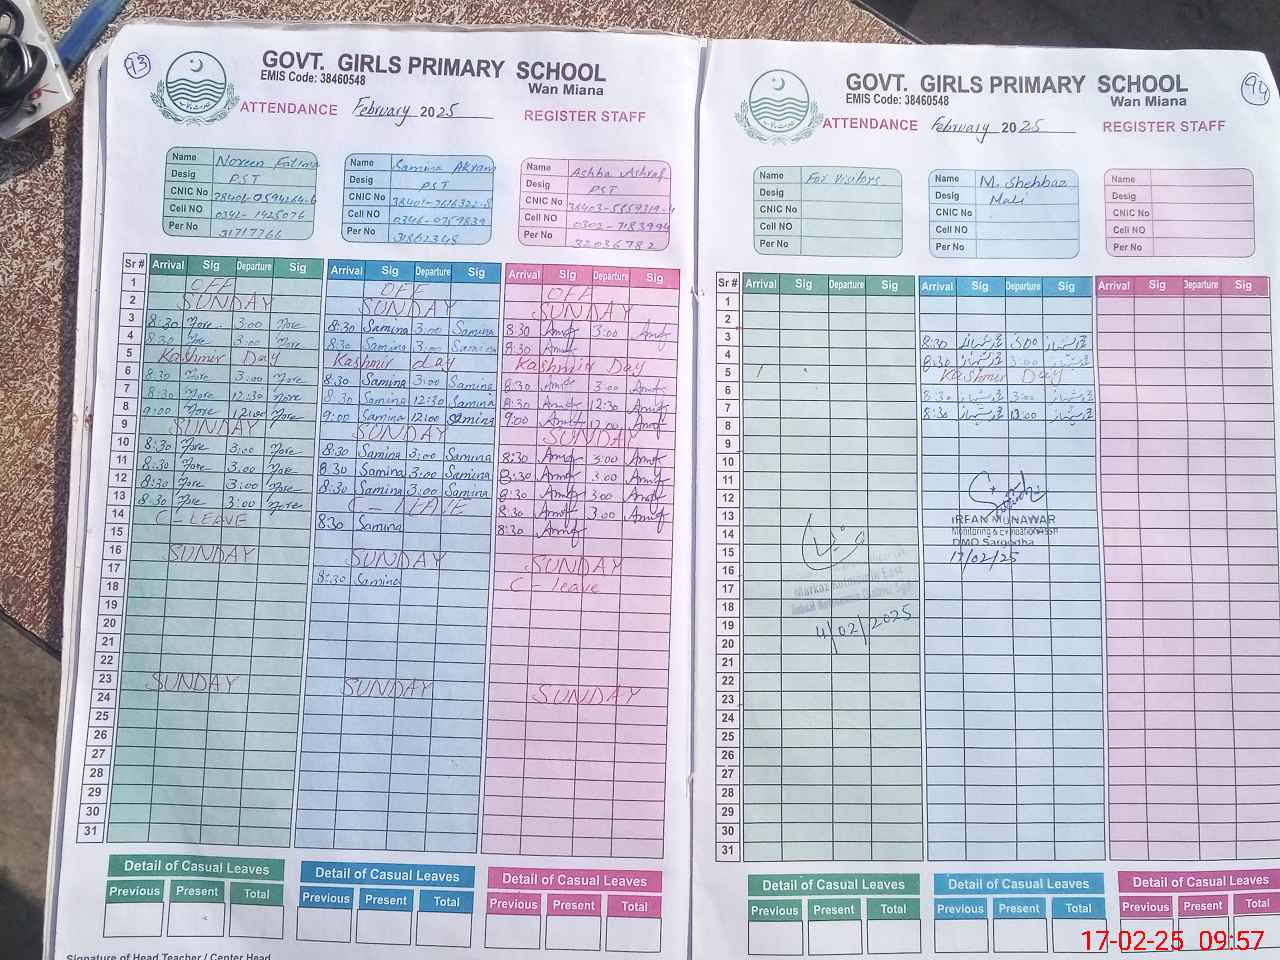 93
GOVT. GIRLS PRIMARY SCHOOL
EMIS Code: 38460548
Wan Miana
ATTENDANCE February 2025 REGISTER STAFF
Name Noreen Fatima
Desig PST
CNIC No
Cell NO 0342-1425076
Per No 31717766
Name Samina Akram
Desig PST
CNIC No
Cell NO 0346-0759839
Per No 31862348
Name Ashba Ashraf
Desig PST
CNIC No
Cell NO 0302-7183994
Per No 32036782
Sr # Arrival Sig Departure Sig Arrival Sig Departure Sig Arrival Sig Departure Sig
1 OFF OFF OFF
2 SUNDAY SUNDAY SUNDAY
3 8:30 3:00 8:30 Samina 3:00 Samina 8:30 3:00
4 8:30 3:00 8:30 Samina 3:00 Samina 8:30
5 Kashmir Day Kashmir day Kashmir Day
6 8:30 3:00 8:30 Samina 3:00 Samina 8:30 3:00
7 8:30 12:30 8:30 Samina 12:30 Samina 8:30 12:30
8 9:00 12:00 9:00 Samina 12:00 Samina 9:00 12:00
9 SUNDAY SUNDAY SUNDAY
10 8:30 3:00 8:30 Samina 3:00 Samina 8:30 3:00
11 8:30 3:00 8:30 Samina 3:00 Samina 8:30 3:00
12 8:30 3:00 8:30 Samina 3:00 Samina 8:30 3:00
13 8:30 3:00 C - LEAVE 8:30 3:00
14 C - LEAVE 8:30 Samina 8:30
15
16 SUNDAY SUNDAY SUNDAY
17 8:30 Samina C - leave
18
19
20
21
22
23 SUNDAY SUNDAY SUNDAY
24
25
26
27
28
29
30
31
Detail of Casual Leaves Detail of Casual Leaves Detail of Casual Leaves
Previous Present Total Previous Present Total Previous Present Total
Signature of Head Teacher / Center Head
94
GOVT. GIRLS PRIMARY SCHOOL
EMIS Code: 38460548
Wan Miana
ATTENDANCE February 2025 REGISTER STAFF
Name For Visitors
Desig
CNIC No
Cell NO
Per No
Name M. Shehbaz
Desig Mali
CNIC No
Cell NO
Per No
Name
Desig
CNIC No
Cell NO
Per No
Sr # Arrival Sig Departure Sig Arrival Sig Departure Sig Arrival Sig Departure Sig
1
2
3 8:30 3:00
4 8:30 3:00
5 Kashmir Day
6 8:30 3:00
7 8:30
8
9
10
11
12
13 IRFAN MUNAWAR
14 Monitoring & Evaluation Asstt
DMO Sargodha
15 17/02/25
16
17
18
19 4/02/2025
20
21
22
23
24
25
26
27
28
29
30
31
Detail of Casual Leaves Detail of Casual Leaves Detail of Casual Leaves
Previous Present Total Previous Present Total Previous Present Total
17-02-25 09:57